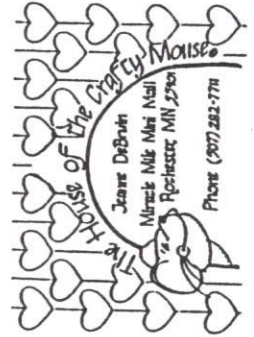 The House of the Crafty Mouse.
Jeanne DeBruin
Miracle Mile Mini Mall
Rochester, MN 55901
Phone (507) 282-7711